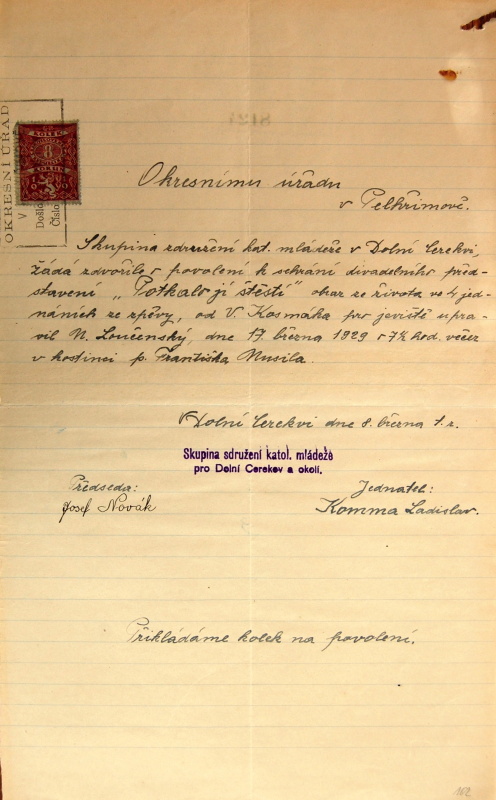 OKRESNÍ ÚŘAD
V
Došlo
Číslo
KOLEK
8
KORUN
Okresnímu úřadu
v Pelhřimově.
Skupina združení kat. mládeže v Dolní Cerekvi,
žádá zdvořile o povolení k sehrání divadelního před-
stavení „Potkalo jí štěstí" obraz ze života ve 4 jed-
náních ze zpěvy, od V. Kosmáka pro jeviště upra-
vil N. Loučenský, dne 17. března 1929 o 7½ hod. večer
v hostinci p. Františka Musila.
V Dolní Cerekvi dne 8. března t. r.
Skupina sdružení katol. mládeže
pro Dolní Cerekev a okolí.
Předseda:
Josef Novák
Jednatel:
Komma Ladislav.
Přikládáme kolek na povolení.
102